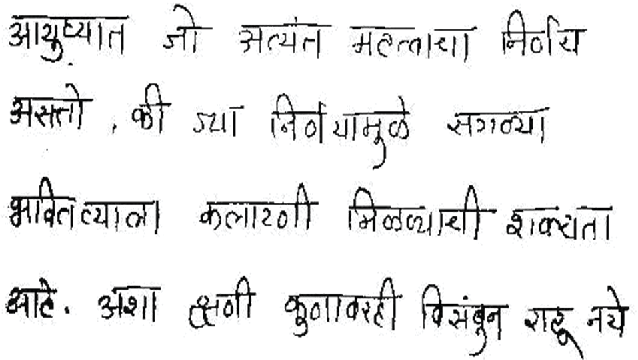 आयुष्यात जो अत्यंत महत्वाचा निर्णय
असतो , की ज्या निर्णयामुळे सगळ्या
भवितव्याला कलाटणी मिळण्याची शक्यता
आहे. अशा क्षणी कुणावरही विसंबून राहू नये